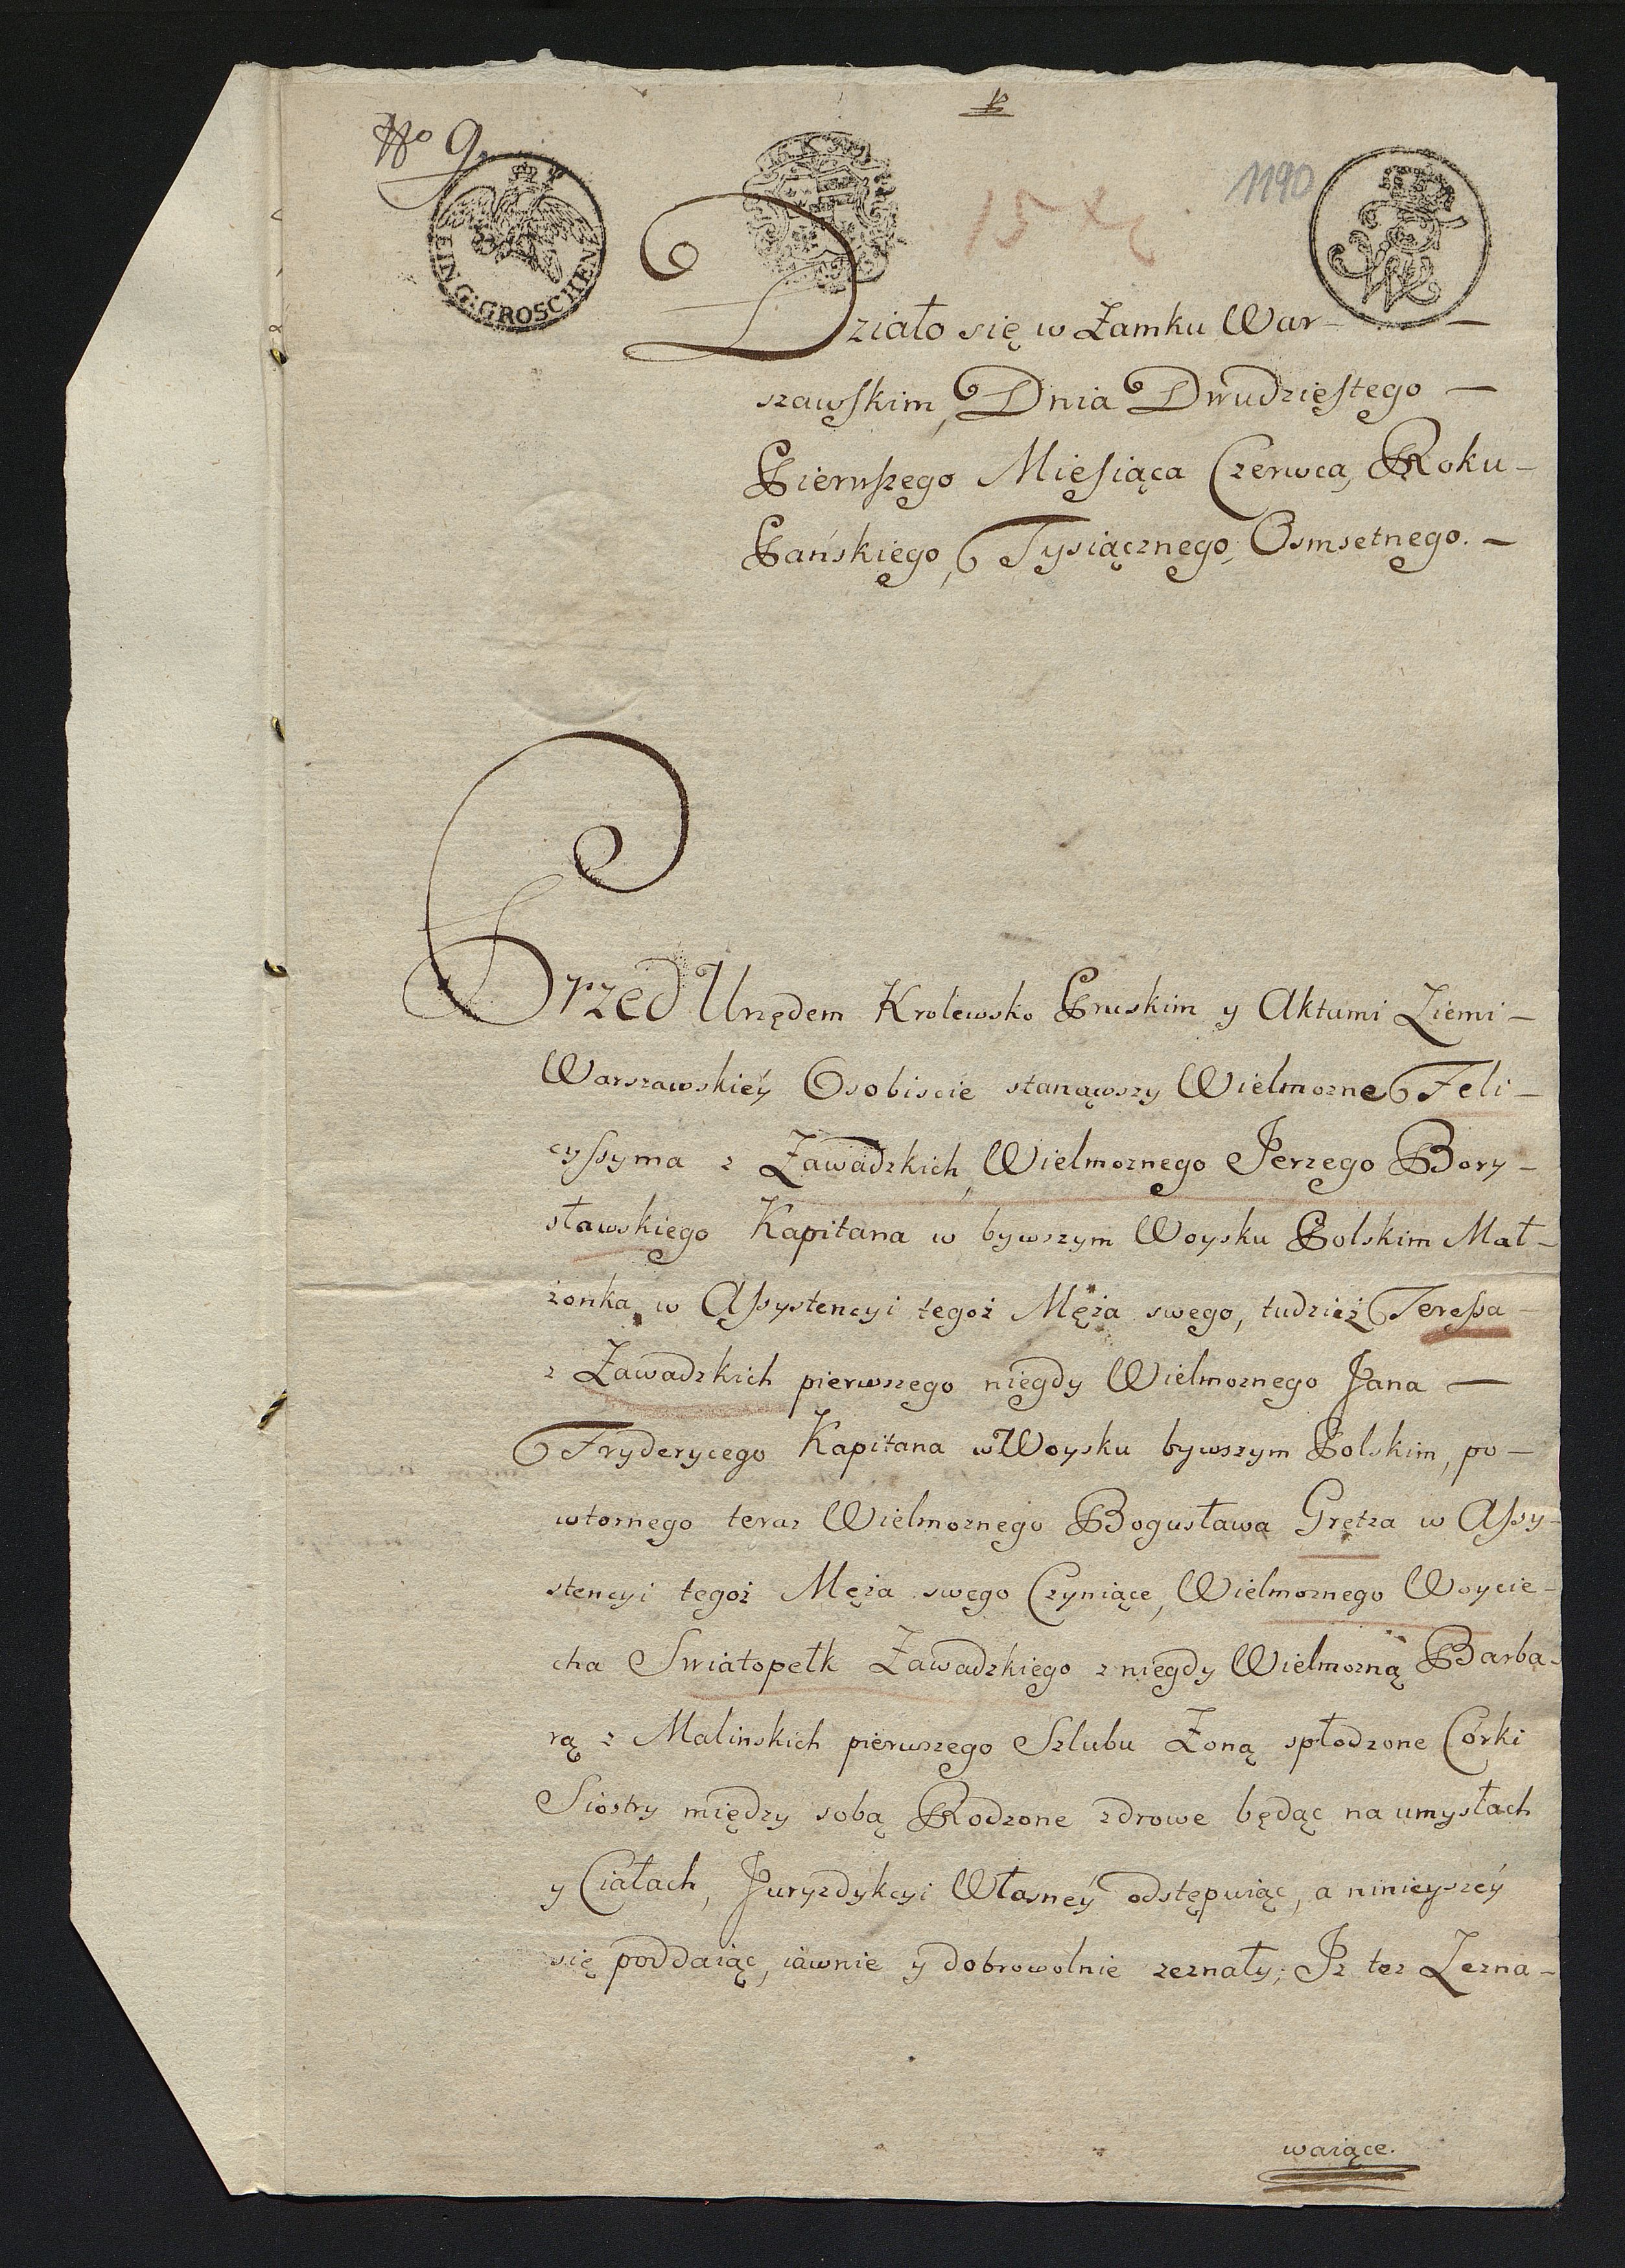 No 9
1190
EIN G: GROSCHEN
Działo się w Zamku War-
szawskim, Dnia Dwudziestego
Pierwszego Miesiąca Czerwca, Roku
Pańskiego, Tysiącznego, Osmsetnego.
Przed Urzędem Krolewsko Pruskim y Aktami Ziemi
Warszawskiéy Osobiscie stanąwszy Wielmozne Feli-
cyssyma z Zawadzkich, Wielmoznego Jerzego Bory-
sławskiego Kapitana w bywszym Woysku Polskim Mał-
żonka, w Assystencyi tegoż Męża swego, tudzież Teressa
z Zawadzkich pierwszego niegdy Wielmoznego Jana
Fryderycego Kapitana w Woysku bywszym Polskim, po-
wtornego teraz Wielmoznego Bogusława Gretza w Assy-
stencyi tegoż Męża swego Czyniące, Wielmoznego Woycie-
cha Swiatopełk Zawadzkiego z niegdy Wielmozną Barba-
rą z Malinskich pierwszego Szlubu Zoną spłodzone Córki
Siostry między sobą Rodzone zdrowe będąc na umysłach
y Ciałach, Juryzdykcyi Własnéy odstępuiąc, a ninieyszéy
się poddaiąc, iawnie y dobrowolnie zeznały; Iz też Zezna-
waiące.